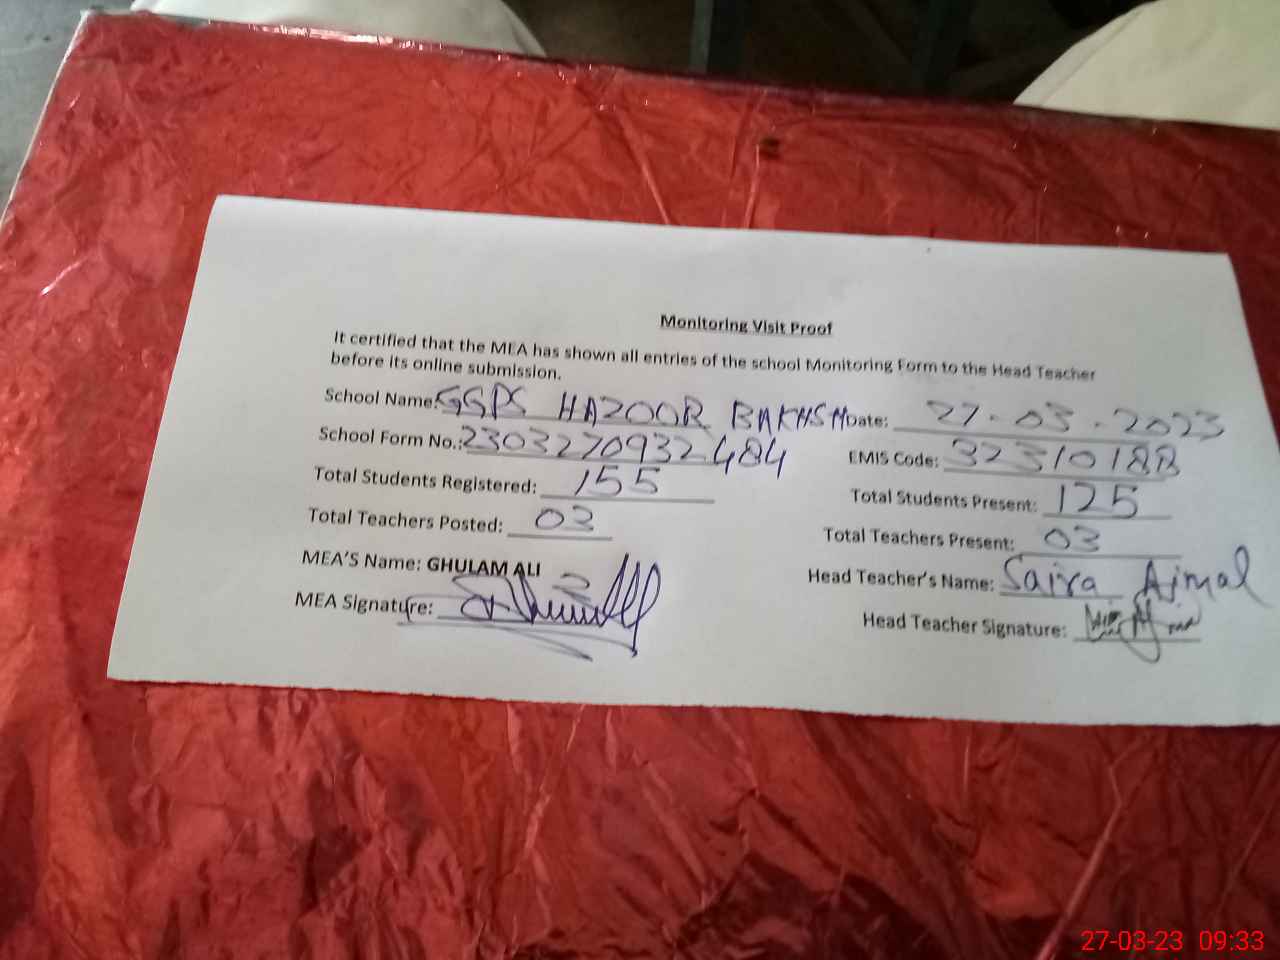 Monitoring Visit Proof
It certified that the MEA has shown all entries of the school Monitoring Form to the Head Teacher
before its online submission.
School Name: GGPS HAZOOR BAKHSH Date: 27-03-2023
School Form No.: 2303270932484 EMIS Code: 32310188
Total Students Registered: 155 Total Students Present: 125
Total Teachers Posted: 03 Total Teachers Present: 03
MEA'S Name: GHULAM ALI Head Teacher's Name: Saira Ajmal
MEA Signature: Head Teacher Signature:
27-03-23 09:33